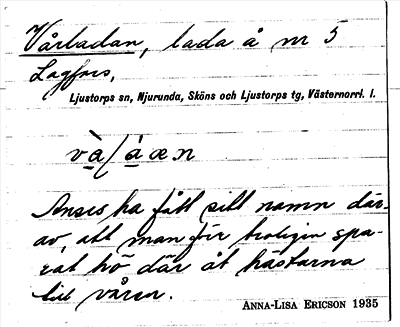 Vårladan, lada å nr 5
Lagfors,
Ljustorps sn, Njurunda, Sköns och Ljustorps tg, Västernorrl. l.
Anses ha fått sitt namn där-
av, att man förr troligen spa-
rat hö där åt hästarna
till våren.
ANNA-LISA ERICSON 1935